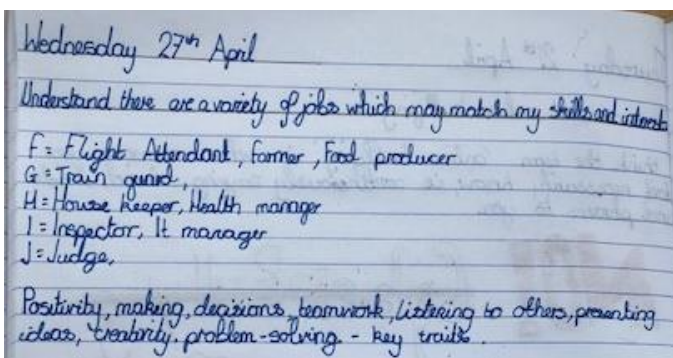 Wednesday 27th April
Understand there are a variety of jobs which may match my skills and interests
F = Flight Attendant, farmer, Food producer
G = Train guard,
H = House keeper, Health manager
I = Inspector, It manager
J = Judge,
Positivity, making, decisions, teamwork, Listening to others, presenting
ideas, creativity. problem-solving. - key traits.